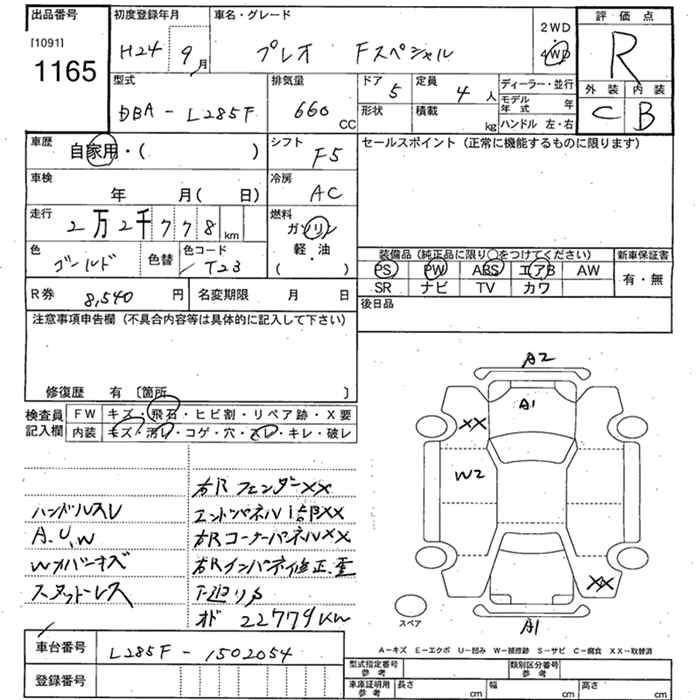 出品番号
[1091]
1165
初度登録年月
H24 9月
車名・グレード
プレオ Fスペシャル
2WD
4WD
評価点
R
外装 内装
C B
型式
DBA - L285F
排気量
660 CC
ドア 5
定員 4 人
形状
積載 kg
ディーラー・並行
モデル年式 年
ハンドル 左・右
車歴
自家用・( )
シフト
F5
セールスポイント(正常に機能するものに限ります)
車検
年 月( 日)
冷房
AC
走行
2万2千778km
燃料
ガソリン
軽・油
( )
色
ゴールド
色替
色コード
T23
装備品(純正品に限り○をつけてください)
新車保証書
PS PW ABS エアB AW
有・無
SR ナビ TV カワ
R券 8,540 円
名変期限 月 日
後日品
注意事項申告欄(不具合内容等は具体的に記入して下さい)
修復歴 有〔箇所 〕
検査員記入欄
FW キズ・飛石・ヒビ割・リペア跡・X要
内装 キズ・汚レ・コゲ・穴・スレ・キレ・破レ
右Rフェンダー××
ハンドルスレ
エンドパネル1部××
A.U,W
右Rコーナーパネル××
Wカバーキズ
右Rインパネ修正,歪
スタットレス
下廻りサ
オド 22779km
A2
A1
××
W2
××
A1
スペア
A-キズ E-エクボ U-凹み W-補修跡 S-サビ C-腐食 XX-取替済
車台番号
L285F - 1502054
登録番号
型式指定番号 参考
類別区分番号 参考
車庫証明用 参考
長さ cm
幅 cm
高さ cm